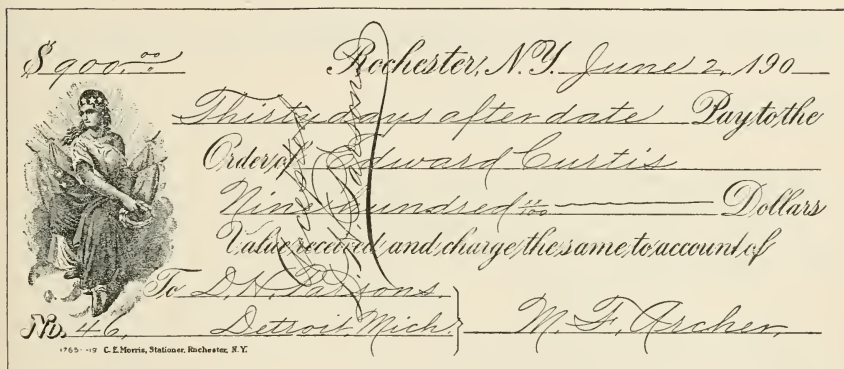 $ 900.00 Rochester, N.Y. June 2, 190
Thirty days after date Pay to the
Order of Edward Curtis
Nine hundred 00/100 Dollars
Value received and charge the same to account of
To D. H. Parsons
No. 46, Detroit, Mich. M. F. Archer,
1765--19 C. E. Morris, Stationer, Rochester, N.Y.
Accepted
D. H. Parsons